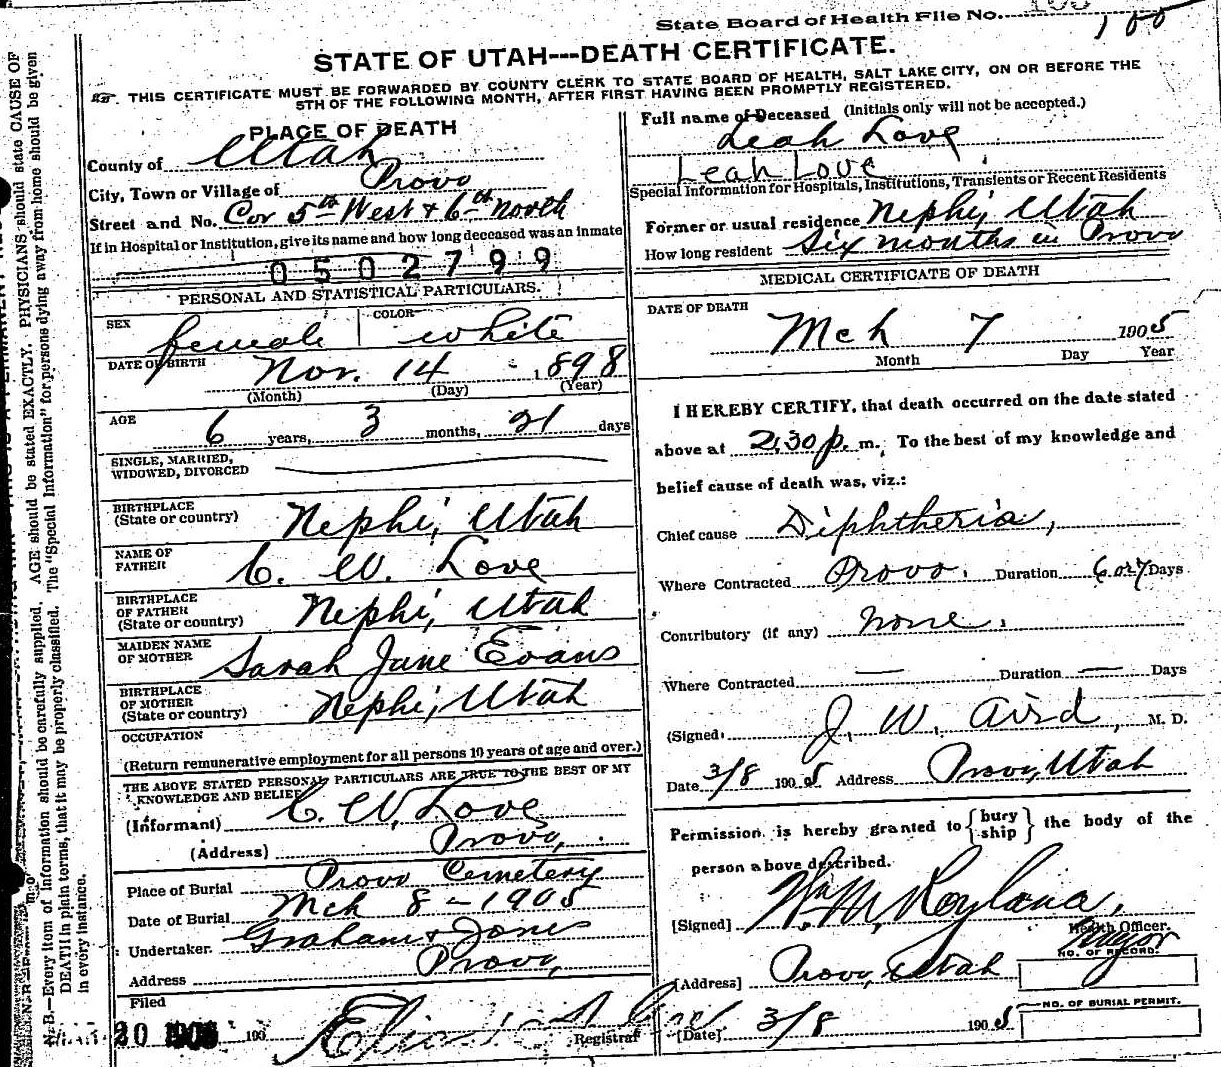 State Board of Health File No. 100
STATE OF UTAH---DEATH CERTIFICATE.
THIS CERTIFICATE MUST BE FORWARDED BY COUNTY CLERK TO STATE BOARD OF HEALTH, SALT LAKE CITY, ON OR BEFORE THE
5TH OF THE FOLLOWING MONTH, AFTER FIRST HAVING BEEN PROMPTLY REGISTERED.
PLACE OF DEATH
County of Utah
City, Town or Village of Provo
Street and No. Cor 5th West & 6th North
If in Hospital or Institution, give its name and how long deceased was an inmate
0502799
PERSONAL AND STATISTICAL PARTICULARS.
SEX female COLOR white
DATE OF BIRTH Nov. 14 1898
(Month) (Day) (Year)
AGE 6 years, 3 months, 21 days
SINGLE, MARRIED,
WIDOWED, DIVORCED
BIRTHPLACE
(State or country) Nephi, Utah
NAME OF
FATHER C. W. Love
BIRTHPLACE
OF FATHER
(State or country) Nephi, Utah
MAIDEN NAME
OF MOTHER Sarah Jane Evans
BIRTHPLACE
OF MOTHER
(State or country) Nephi, Utah
OCCUPATION
(Return remunerative employment for all persons 10 years of age and over.)
THE ABOVE STATED PERSONAL PARTICULARS ARE TRUE TO THE BEST OF MY
KNOWLEDGE AND BELIEF
(Informant) C. W. Love
(Address) Provo,
Place of Burial Provo Cemetery
Date of Burial Mch 8-1905
Undertaker. Graham & Jones
Address Provo,
Filed
20 190
Registrar
Full name of Deceased (Initials only will not be accepted.)
Leah Love
Leah Love
Special Information for Hospitals, Institutions, Transients or Recent Residents
Former or usual residence Nephi, Utah
How long resident six months in Provo
MEDICAL CERTIFICATE OF DEATH
DATE OF DEATH
Mch 7 1905
Month Day Year
I HEREBY CERTIFY, that death occurred on the date stated
above at 2,30 p. m. To the best of my knowledge and
belief cause of death was, viz.:
Chief cause Diphtheria,
Where Contracted Provo. Duration 6 or 7 Days
Contributory (if any) None.
Where Contracted — Duration — Days
(Signed) J. W. Aird, M. D.
Date 3/8 1905 Address Provo, Utah
Permission is hereby granted to {bury ship} the body of the
person above described.
[Signed] Wm M, Roylance,
Health Officer.
Mayor
NO. OF RECORD.
[Address] Provo, Utah
NO. OF BURIAL PERMIT.
[Date] 3/8 1905
N. B.—Every item of information should be carefully supplied. AGE should be stated EXACTLY. PHYSICIANS should state CAUSE OF
DEATH in plain terms, that it may be properly classified. The "Special Information" for persons dying away from home should be given
in every instance.